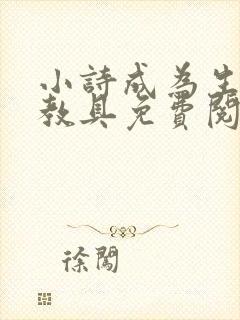 小詩成為生
教具免費閱
徐闖